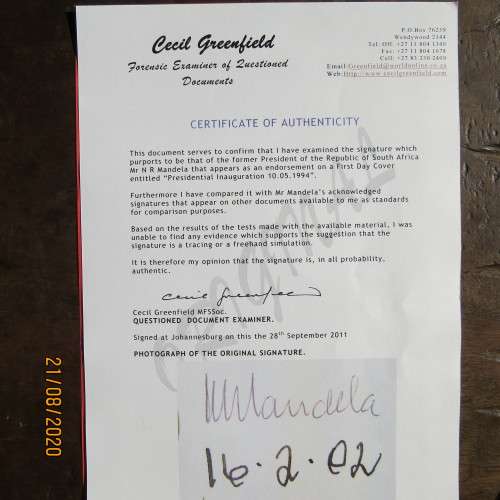 Cecil Greenfield
Forensic Examiner of Questioned
Documents
P.O.Box 76239
Wendywood 2144
Tel: Off: +27 11 804 1340
Fax: +27 11 804 1678
Cell: +27 83 230 2400
Email:Greenfield@worldonline.co.za
Web:Http://www.cecilgreenfield.com
CERTIFICATE OF AUTHENTICITY
This document serves to confirm that I have examined the signature which
purports to be that of the former President of the Republic of South Africa
Mr N R Mandela that appears as an endorsement on a First Day Cover
entitled "Presidential Inauguration 10.05.1994".
Furthermore I have compared it with Mr Mandela's acknowledged
signatures that appear on other documents available to me as standards
for comparison purposes.
Based on the results of the tests made with the available material, I was
unable to find any evidence which supports the suggestion that the
signature is a tracing or a freehand simulation.
It is therefore my opinion that the signature is, in all probability,
authentic.
Cecil Greenfield
Cecil Greenfield MFSSoc.
QUESTIONED DOCUMENT EXAMINER.
Signed at Johannesburg on this the 28th September 2011
PHOTOGRAPH OF THE ORIGINAL SIGNATURE.
Mandela
16·2·02
21/08/2020